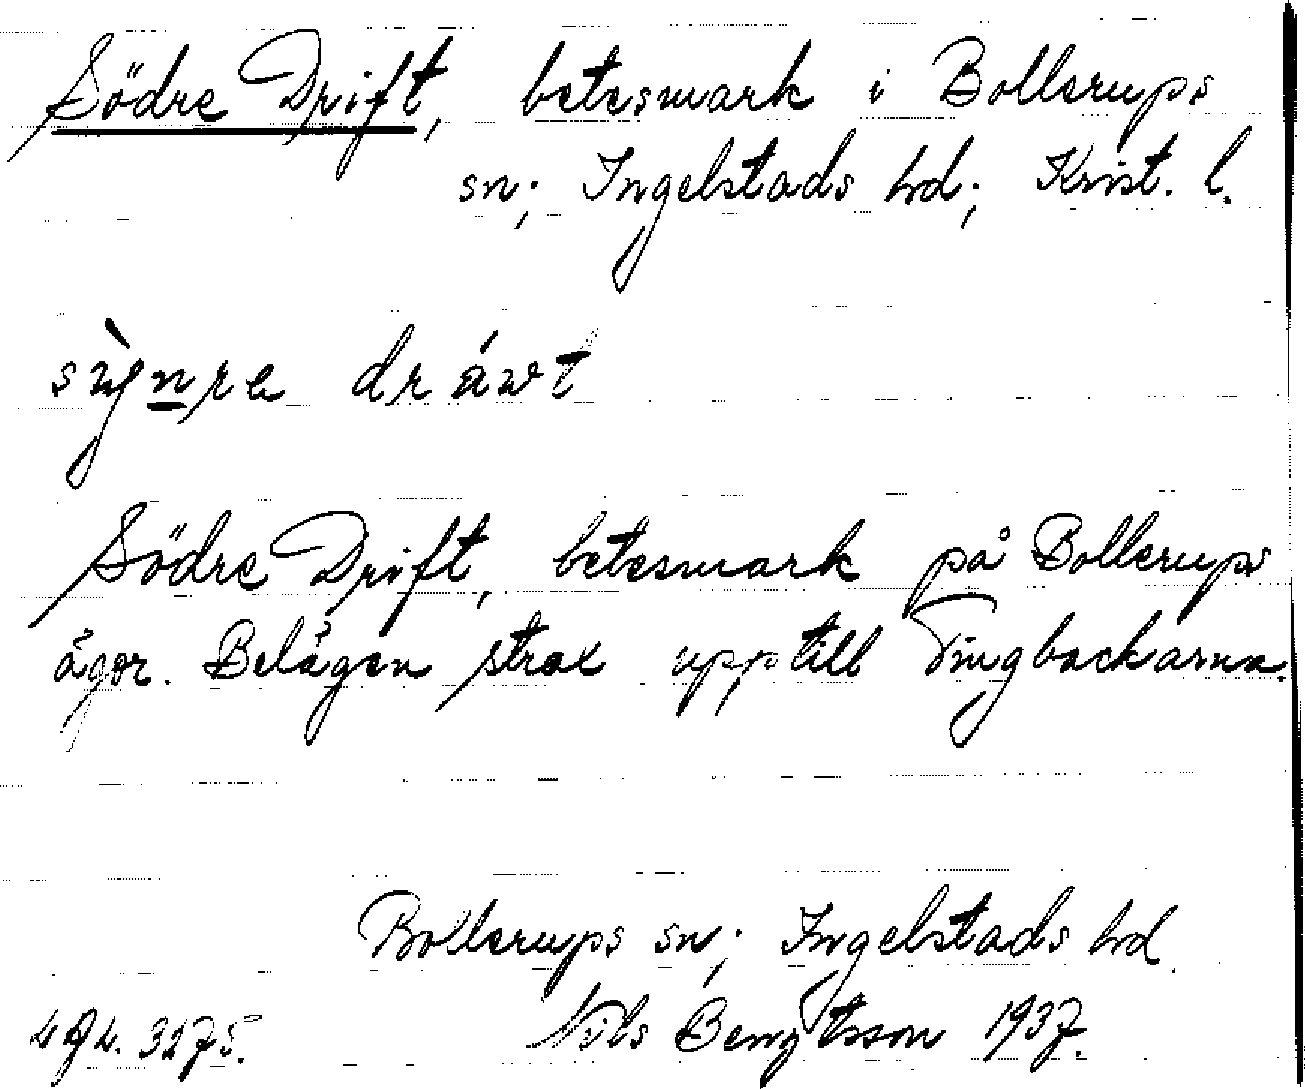 Södre Drift, betesmark i Bollerups
sn; Ingelstads hd; Krist. l.
sỳn̲re dráwt
Södre Drift, betesmark på Bollerups
ägor. Belägen strax upp till Tingbackarna.
Bollerups sn; Ingelstads hd
Nils Bengtsson 1937.
3275.